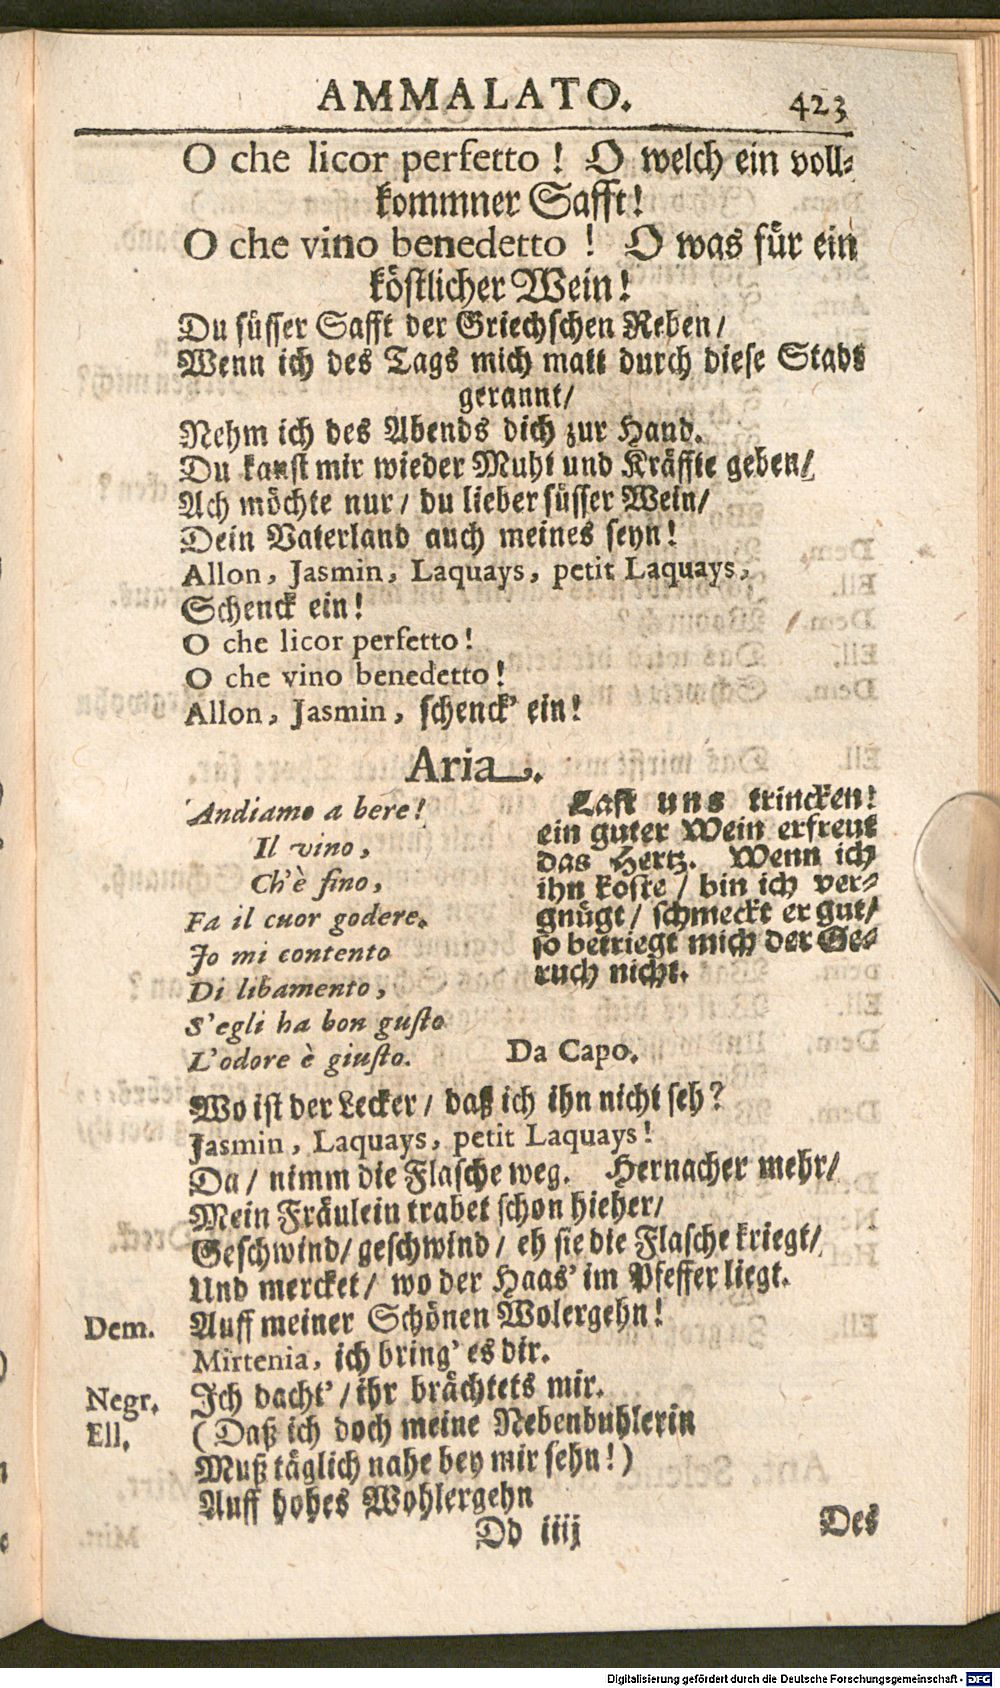 AMMALATO. 423
O che licor perfetto! O welch ein voll-
kommner Safft!
O che vino benedetto! O was für ein
köstlicher Wein!
Du süsser Safft der Griechschen Reben/
Wenn ich des Tags mich matt durch diese Stadt
gerannt/
Nehm ich des Abends dich zur Hand.
Du kanst mir wieder Muht und Kräffte geben/
Ach möchte nur/ du lieber süsser Wein/
Dein Vaterland auch meines seyn!
Allon, Jasmin, Laquays, petit Laquays,
Schenck ein!
O che licor perfetto!
O che vino benedetto!
Allon, Jasmin, schenck' ein!
Aria.
Andiamo a bere!
Il vino,
Ch'è fino,
Fa il cuor godere.
Jo mi contento
Di libamento,
S'egli ha bon gusto
L'odore è giusto.
Last uns trincken!
ein guter Wein erfreut
das Hertz. Wenn ich
ihn koste / bin ich ver-
gnügt/ schmeckt er gut/
so betriegt mich der Ge-
ruch nicht.
Da Capo.
Wo ist der Lecker/ daß ich ihn nicht seh?
Jasmin, Laquays, petit Laquays!
Da/ nimm die Flasche weg. Hernacher mehr/
Mein Fräulein trabet schon hieher/
Geschwind/ geschwind/ eh sie die Flasche kriegt/
Und mercket/ wo der Haas' im Pfeffer liegt.
Dem. Auff meiner Schönen Wolergehn!
Mirtenia, ich bring' es dir.
Negr. Ich dacht'/ ihr brächtets mir.
Ell. (Daß ich doch meine Nebenbuhlerin
Muß täglich nahe bey mir sehn!)
Auff hohes Wohlergehn
Dd iiij Des
Digitalisierung gefördert durch die Deutsche Forschungsgemeinschaft - DFG